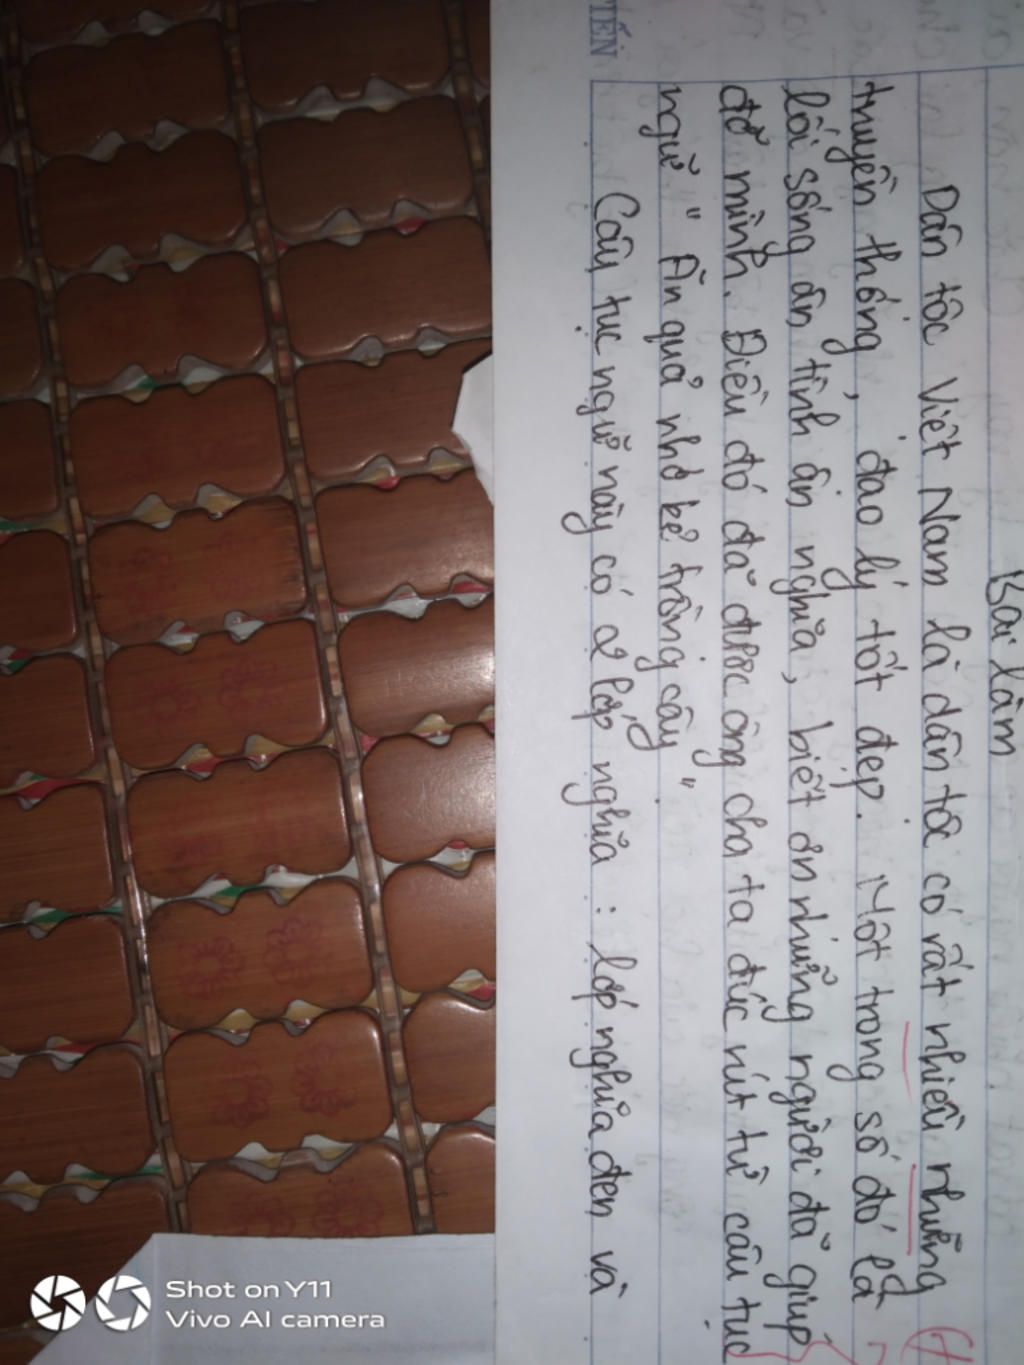 Bài làm
Dân tộc Việt Nam là dân tộc có rất nhiều những
truyền thống, đạo lý tốt đẹp. Một trong số đó là
lối sống ân tình ân nghĩa, biết ơn những người đã giúp
đỡ mình. Điều đó đã được ông cha ta đúc rút từ câu tục
ngữ " Ăn quả nhớ kẻ trồng cây "
Câu tục ngữ này có 2 lớp nghĩa : lớp nghĩa đen và
TIẾN
Shot on Y11
Vivo AI camera